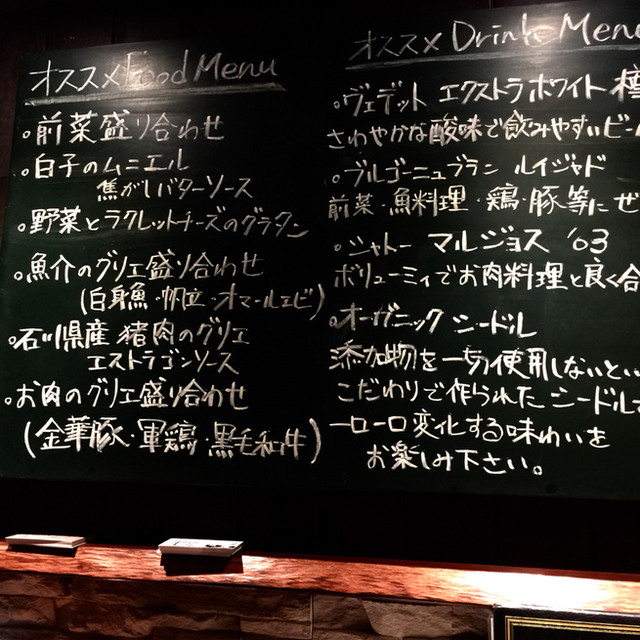 オススメ Food Menu
。前菜盛り合わせ
。白子のムニエル
焦がしバターソース
。野菜とラクレットチーズのグラタン
。魚介のグリエ盛り合わせ
(白身魚・帆立・オマールエビ)
。石川県産 猪肉のグリエ
エストラゴンソース
。お肉のグリエ盛り合わせ
(金華豚・軍鶏・黒毛和牛)
オススメ Drink Menu
。ヴェデット エクストラホワイト 樽
さわやかな酸味で飲みやすいビー
。ブルゴーニュブラン ルイジャド
前菜・魚料理・鶏・豚等にぜ
。シャトー マルジョス '03
ボリューミィでお肉料理と良く合
。オーガニック シードル
添加物を一切使用しないとい
こだわりで作られたシードル
一口一口変化する味わいを
お楽しみ下さい。